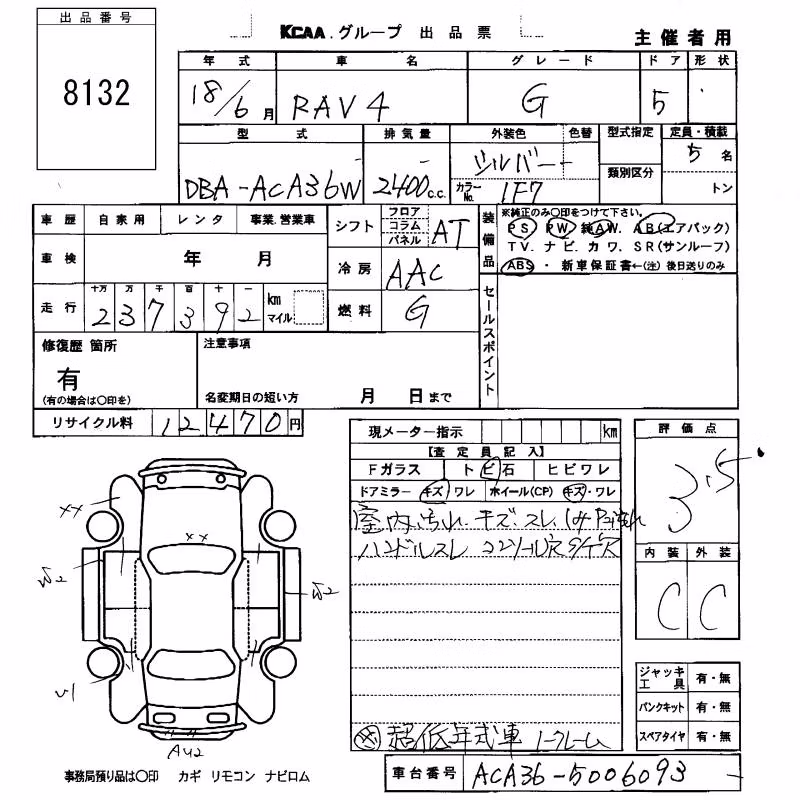 出品番号
8132
KCAA.グループ 出品票
主催者用
年式 車名 グレード ドア 形状
18/6月 RAV4 G 5
型式 排気量 外装色 色替 型式指定 定員・積載
DBA-ACA36W 2400c.c. シルバー カラーNo. 1F7 類別区分 5名 トン
車歴 自家用 レンタ 事業.営業車
シフト フロア コラム パネル AT
装備品 ※純正のみ○印をつけて下さい。
PS PW 純AW. AB(エアバッグ)
TV. ナビ. カワ. SR(サンルーフ)
ABS ・ 新車保証書←(注)後日送りのみ
車検 年 月
冷房 AAC
走行 十万 万 千 百 十 一 km マイル
237392
燃料 G
セールスポイント
修復歴 箇所
有
(有の場合は○印を)
注意事項
名変期日の短い方 月 日まで
リサイクル料 12470円
現メーター指示 km
【査定員記入】
Fガラス トビ石 ヒビワレ
ドアミラー キズ・ワレ ホイール(CP) キズ・ワレ
室内汚れ.キズ.スレ.
ハンドルスレ
超低年式車 ノークレーム
評価点
3.5
内装 外装
C C
XX
XX
W2
W2
U1
AU2
ジャッキ工具 有・無
パンクキット 有・無
スペアタイヤ 有・無
事務局預り品は○印 カギ リモコン ナビロム
車台番号 ACA36-5006093